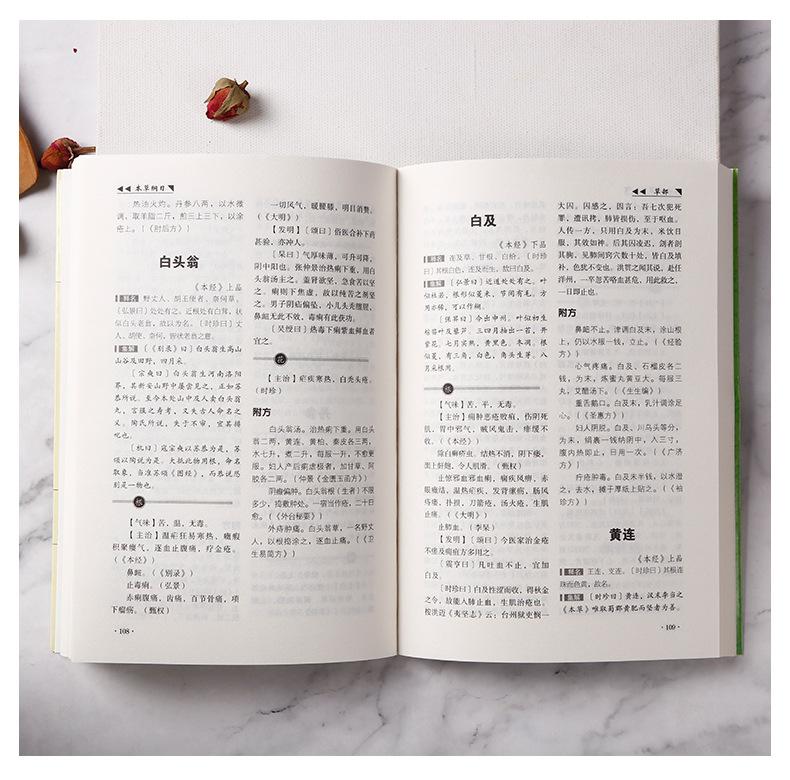 本草纲目
热汤火灼。丹参八两，以水微
调，取羊脂二斤，煎三上三下，以涂
疮上。（《肘后方》）
白头翁
《本经》上品
释名 野丈人、胡王使者、奈何草。
〔弘景曰〕处处有之。近根处有白茸，状
似白头老翁，故以为名。〔时珍曰〕丈
人、胡使、奈何，皆状老翁之意。
集解 〔《别录》曰〕白头翁生高山
山谷及田野，四月采。
〔宗奭曰〕白头翁生河南洛阳
界，其新安山野中屡尝见之，正如苏
恭所说。至今本处山中及人卖白头翁
丸，言服之寿考，又失古人命名之
义。陶氏所说，失于不审，宜其排
叱也。
〔机曰〕寇宗奭以苏恭为是，苏
颂以陶说为是。大抵此物用根，命名
取象，当准苏颂《图经》，而恭说恐
别是一物也。
根
【气味】苦，温，无毒。
【主治】温疟狂易寒热，癥瘕
积聚瘿气，逐血止腹痛，疗金疮。
（《本经》）
鼻衄。（《别录》）
止毒痢。（弘景）
赤痢腹痛，齿痛，百节骨痛，项
下瘤疬。（甄权）
·108·
一切风气，暖腰膝，明目消赘。
（《大明》）
【发明】〔颂曰〕俗医合补下药
甚验，亦冲人。
〔杲曰〕气厚味薄，可升可降，
阴中阳也。张仲景治热痢下重，用白
头翁汤主之。盖肾欲坚，急食苦以坚
之。痢则下焦虚，故以纯苦之剂坚
之。男子阴疝偏坠，小儿头秃膻腥，
鼻衄无此不效，毒痢有此获功。
〔吴绶曰〕热毒下痢紫血鲜血者
宜之。
花
【主治】疟疾寒热，白秃头疮。
（时珍）
附方
白头翁汤。治热痢下重。用白头
翁二两，黄连、黄柏、秦皮各三两，
水七升，煮二升，每服一升，不愈更
服。妇人产后痢虚极者，加甘草、阿
胶各二两。（仲景《金匮玉函方》）
阴癩偏肿。白头翁根（生者）不限
多少，捣敷肿处。一宿当作疮，二十日
愈。（《外台秘要》）
外痔肿痛。白头翁草，一名野丈
人，以根捣涂之，逐血止痛。（《卫
生易简方》）
草部
白及
《本经》下品
释名 连及草、甘根、白给。〔时珍
曰〕其根白色，连及而生，故曰白及。
集解 〔弘景曰〕近道处处有之。叶
似杜若，根形似菱米，节间有毛。方
用亦稀，可以作糊。
〔保昇曰〕今出申州。叶似初生
棕苗叶及藜芦。三四月抽出一苔，开
紫花。七月实熟，黄黑色。冬凋。根
似菱，有三角，白色，角头生芽。八
月采根用。
根
【气味】苦，平，无毒。
【主治】痈肿恶疮败疽，伤阴死
肌，胃中邪气，贼风鬼击，痱缓不
收。（《本经》）
除白癣疥虫。结热不消，阴下痿，
面上皯疱，令人肌滑。（甄权）
止惊邪血邪血痢，痫疾风痹，赤
眼癥结，温热疟疾，发背瘰疬，肠风
痔瘘，扑损，刀箭疮，汤火疮，生肌
止痛。（《大明》）
止肺血。（李杲）
【发明】〔颂曰〕今医家治金疮
不瘥及痈疽方多用之。
〔震亨曰〕凡吐血不止，宜加
白及。
〔时珍曰〕白及性涩而收，得秋金
之令，故能入肺止血，生肌治疮也。
按洪迈《夷坚志》云：台州狱吏悯一
大囚。囚感之，因言：吾七次犯死
罪，遭讯拷，肺皆损伤，至于呕血。
人传一方，只用白及为末，米饮日
服，其效如神。后其囚凌迟，剑者剖
其胸，见肺间窍穴数十处，皆白及填
补，色犹不变也。洪贯之闻其说，赴任
洋州，一卒忽苦咯血甚危，用此救之，
一日即止也。
附方
鼻衄不止。津调白及末，涂山根
上，仍以水服一钱，立止。（《经验
方》）
心气疼痛。白及、石榴皮各二
钱，为末，炼蜜丸黄豆大。每服三
丸，艾醋汤下。（《生生编》）
重舌鹅口。白及末，乳汁调涂足
心。（《圣惠方》）
妇人阴脱。白及、川乌头等分，
为末，绢裹一钱纳阴中，入三寸，
腹内热即止，日用一次。（《广济
方》）
疔疮肿毒。白及末半钱，以水澄
之，去水，摊于厚纸上贴之。（《袖
珍方》）
黄连
《本经》上品
释名 王连、支连。〔时珍曰〕其根连
珠而色黄，故名。
集解 〔时珍曰〕黄连，汉末李当之
《本草》唯取蜀郡黄肥而坚者为善。
·109·